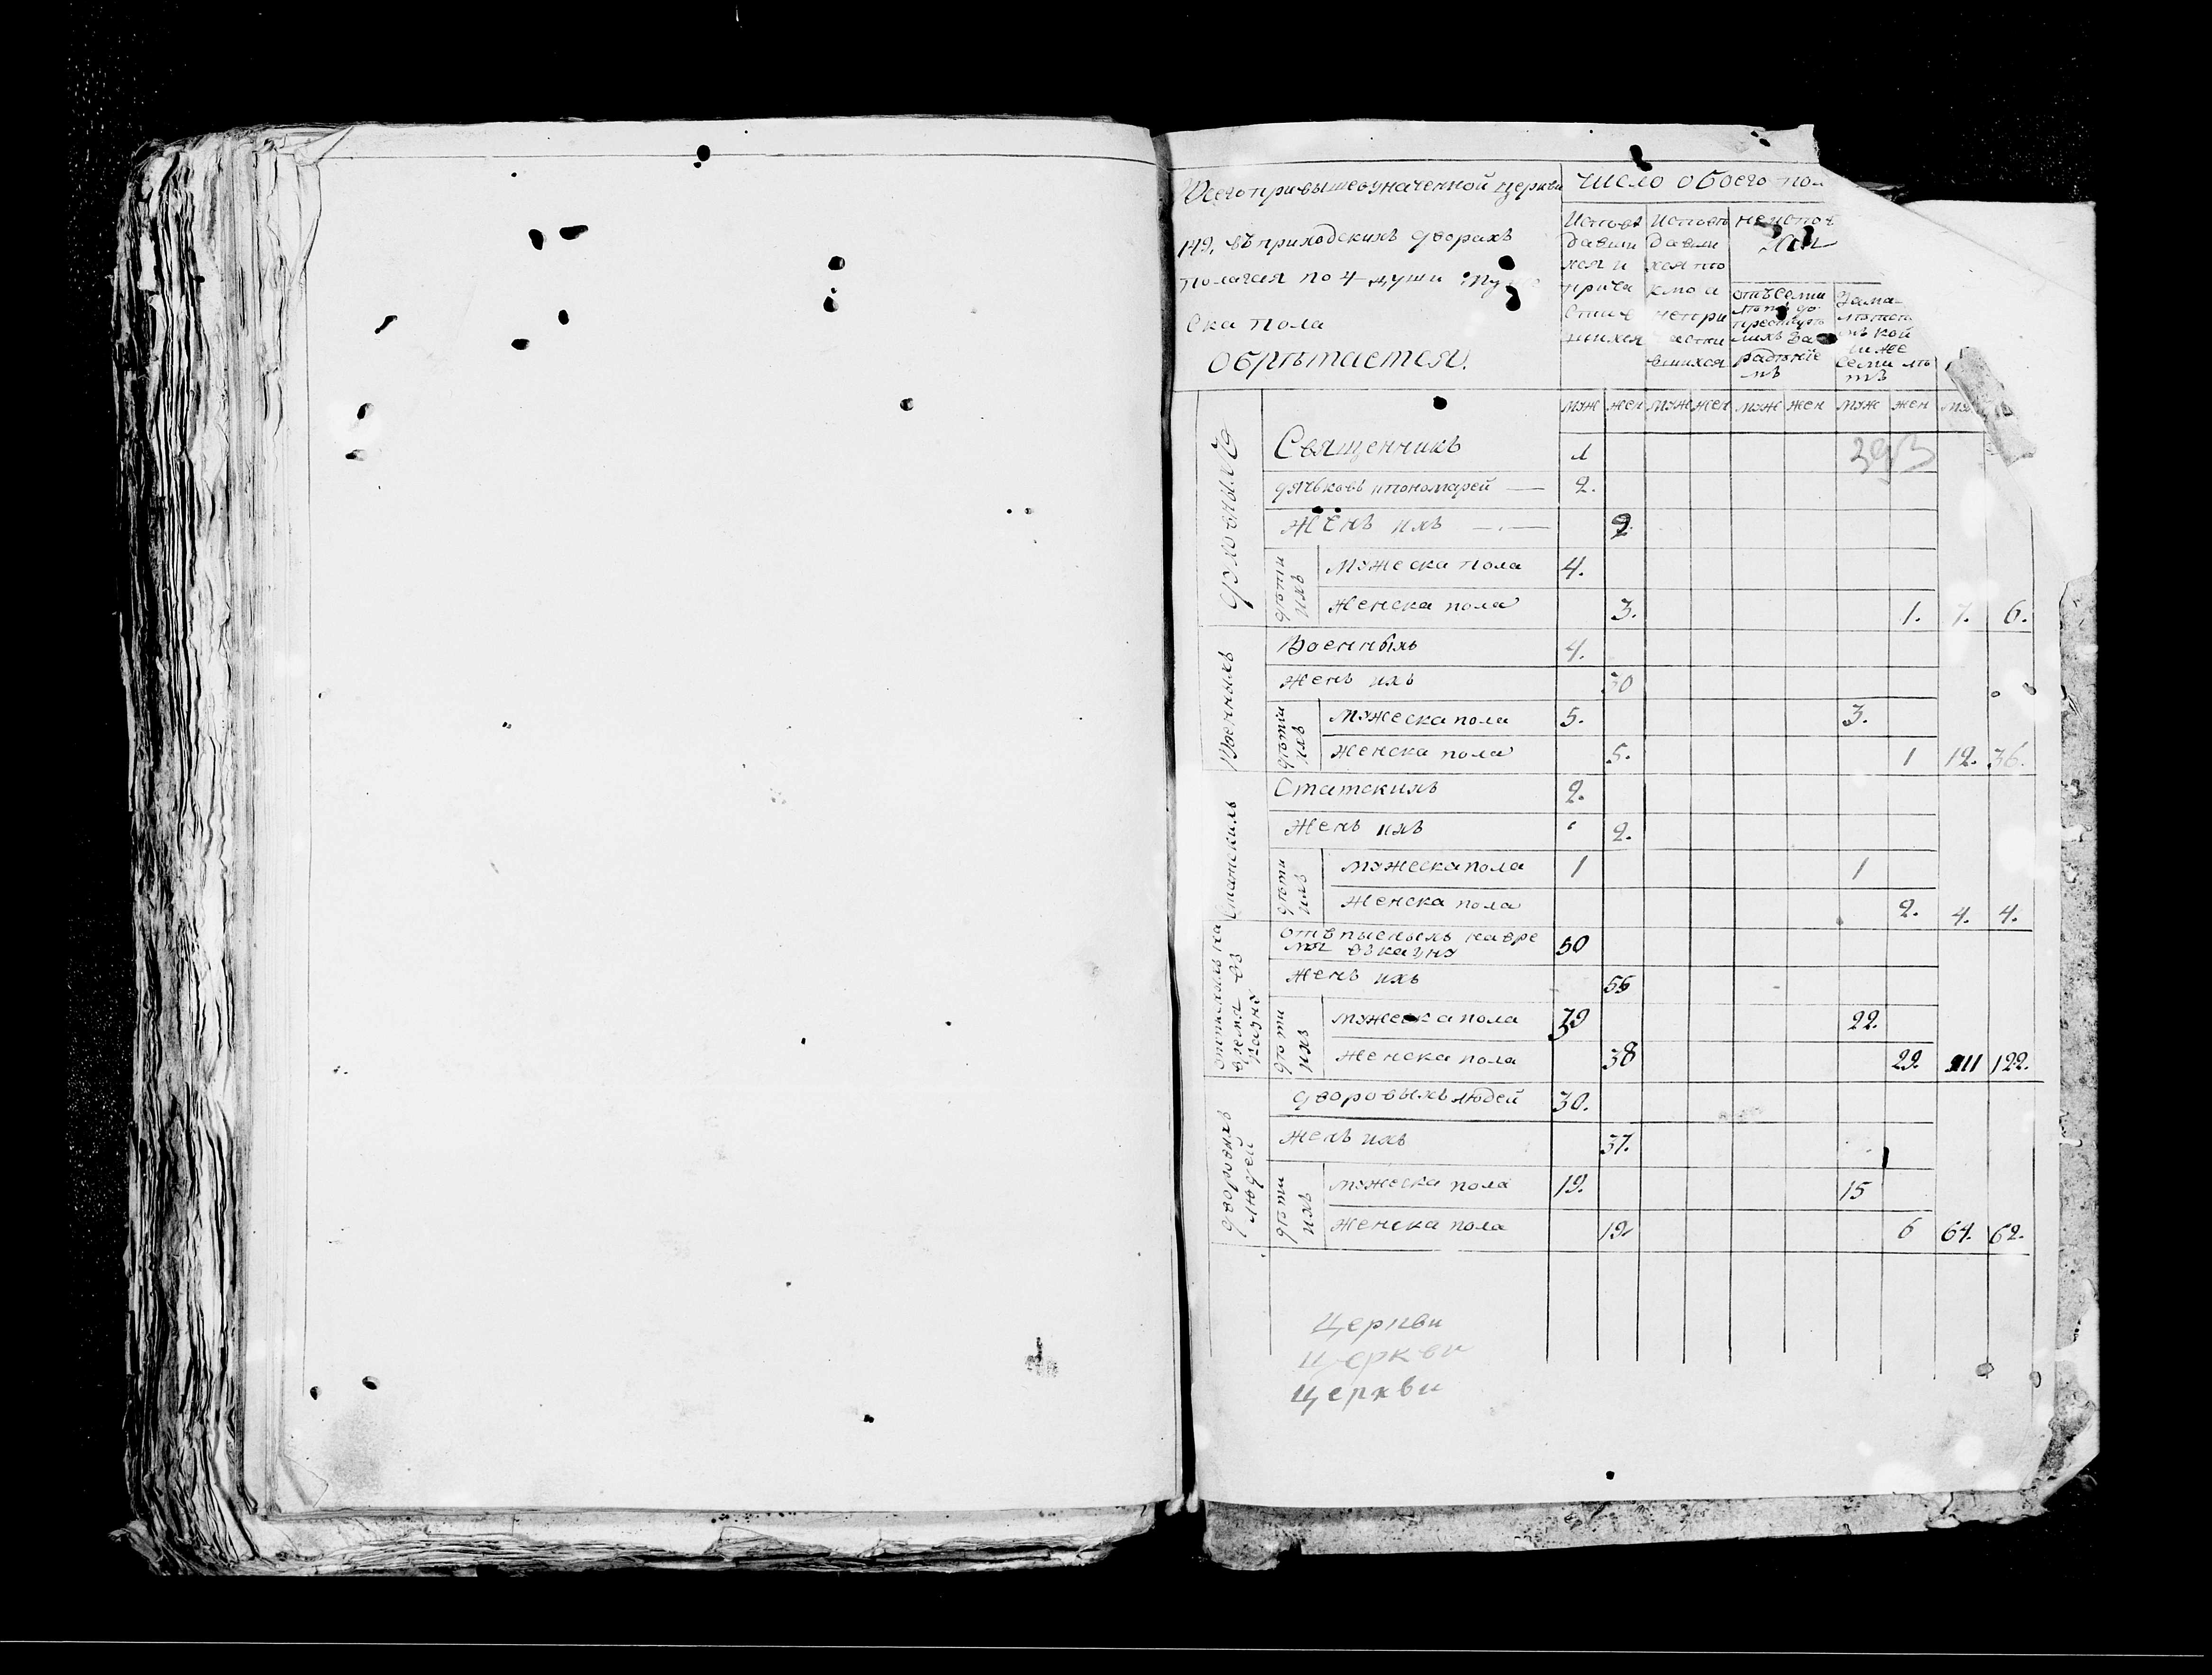 Всего при вышеозначенной церкви
149. въ приходскихъ дворахъ
полагая по 4 души
ска пола
обрѣтается.
число обоего пол
Исповѣ
давши
хся и
прича
стив
шихся
Исповѣ
давши
хся то
кмо а
непри
части
вшихся
неиспов
отъ семи
лѣтъ до
лихъ
кой
ниже
семи лѣ
тъ
муж жен муж жен муж жен муж жен
393
духовныхъ
Священникъ 1
дячьковъ и пономарей — 2.
женъ ихъ — 2.
дѣти ихъ
мужеска пола 4.
женска пола 3. 1. 7. 6.
Военныхъ
Военныхъ 4.
женъ ихъ 30
дѣти ихъ
мужеска пола 5. 3.
женска пола 5. 1 12. 36.
Статскихъ
Статскихъ 2.
женъ ихъ 2.
дѣти ихъ
мужеска пола 1 1
женска пола 2. 4. 4.
время въ
казну
отъписныхъ на вре
мя въ казну 50
женъ ихъ 55
дѣти ихъ
мужеска пола 39 22.
женска пола 38 29. 111 122.
дворовыхъ
людей
дворовыхъ людей 30.
женъ ихъ 37.
дѣти ихъ
мужеска пола 19. 15
женска пола 19 6 64. 62.
Церкви
Церкви
Церкви